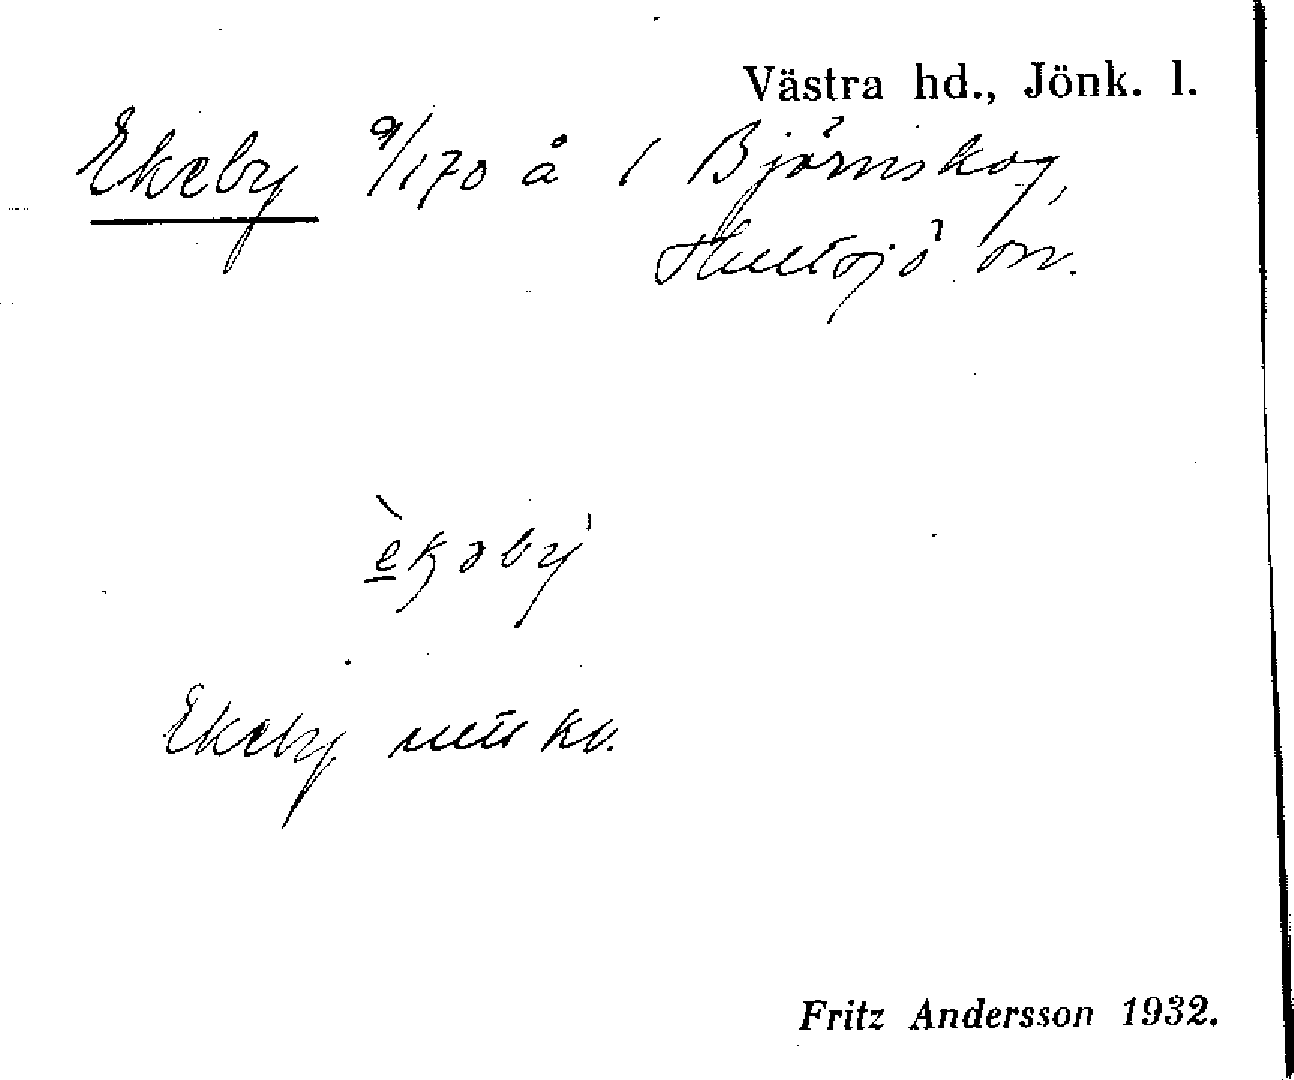 Västra hd., Jönk. l.
Ekeby 9/170 å 1 Björnskog,
Hultsjö sn.
è̱kəbý
Ekeby kv.
Fritz Andersson 1932.